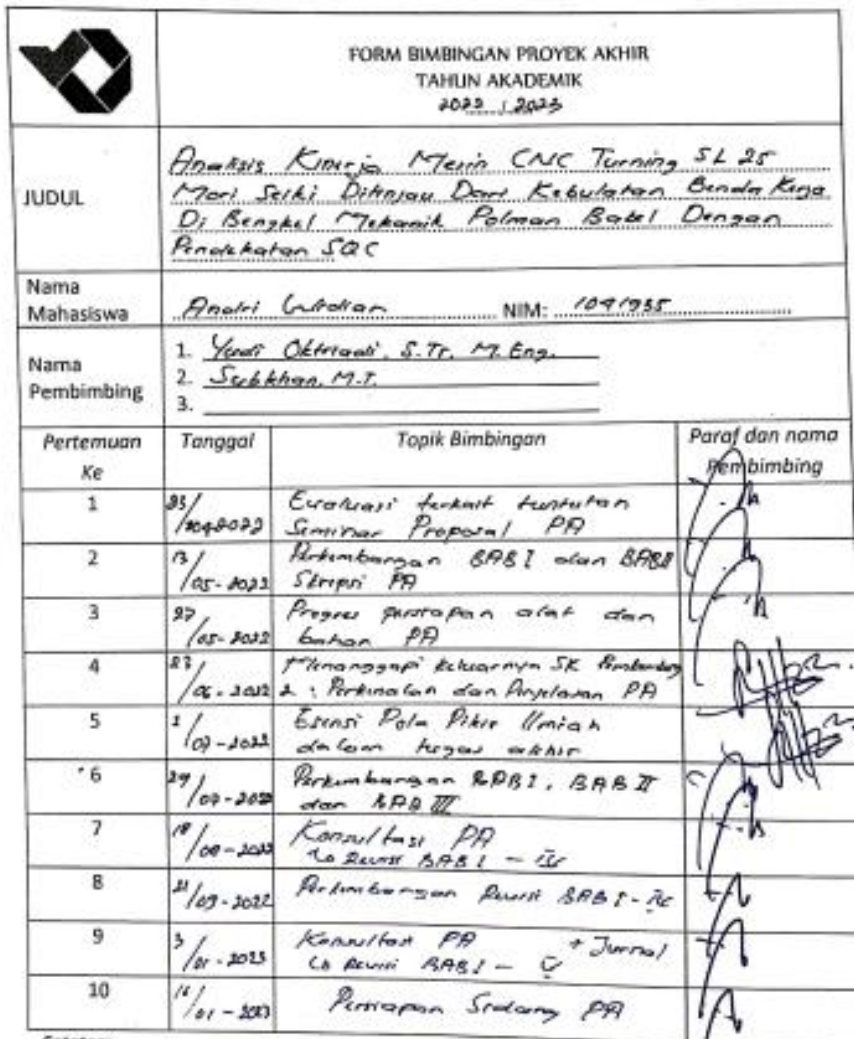 FORM BIMBINGAN PROYEK AKHIR
TAHUN AKADEMIK
2022 / 2023
JUDUL
Analisis Kinerja Mesin CNC Turning SL 25
Mori Seiki Ditinjau Dari Kebulatan Benda Kerja
Di Bengkel Mekanik Polman Babel Dengan
Pendekatan SQC
Nama
Mahasiswa
Andri NIM: 1041935
Nama
Pembimbing
1. Yudi Oktriadi, S.Tr, M.Eng.
2. Subkhan, M.T.
3.
Pertemuan Ke Tanggal Topik Bimbingan Paraf dan nama Pembimbing
1 Evaluasi terkait tuntutan
Seminar Proposal PA
2 13/05-2022 Perkembangan BAB I dan BAB II
Skripsi PA
3 27/05-2022 Progres persiapan alat dan
bahan PA
4 23/06-2022 Menanggapi keluarnya SK Pembimbing
2 : Perkenalan dan Penjelasan PA
5 Esensi Pola Pikir Ilmiah
dalam tugas akhir
6 Perkembangan BAB I, BAB II
dan BAB III
7 Konsultasi PA
Revisi BAB I - IV
8 21/09-2022 Perkembangan Revisi BAB I - IV
9 3/01-2023 Konsultasi PA + Jurnal
Revisi BAB I - V
10 16/01-2023 Persiapan Sidang PA